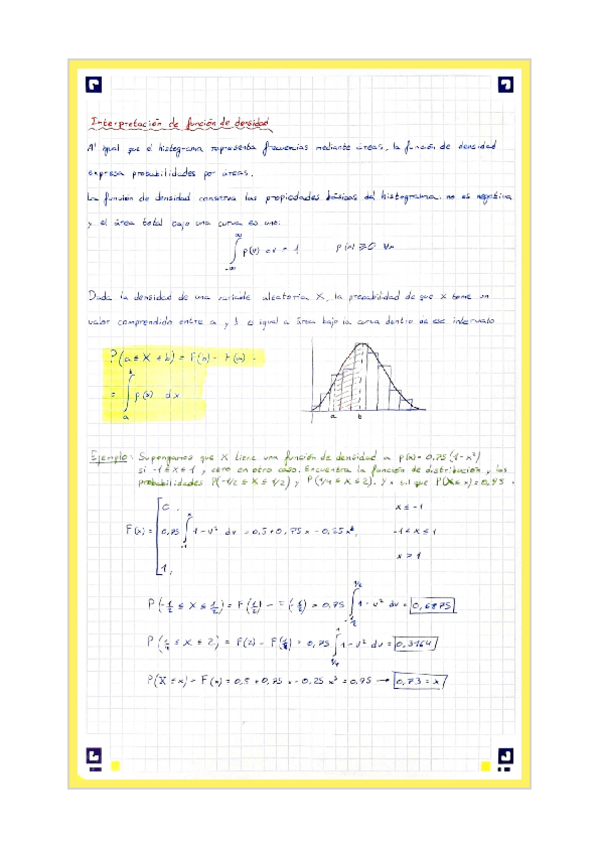 Interpretación de función de densidad
Al igual que el histograma representa frecuencias mediante áreas, la función de densidad
expresa probabilidades por áreas.
La función de densidad conserva las propiedades básicas del histograma: no es negativa
y el área total bajo una curva es uno:
∫_{-∞}^{∞} p(v) dv = 1 p(x) ≥ 0 ∀x
Dada la densidad de una variable aleatoria X, la probabilidad de que X tome un
valor comprendido entre a y b es igual a área bajo la curva dentro de ese intervalo
P(a ≤ X ≤ b) = F(b) - F(a) =
= ∫_a^b p(x) dx
a b
Ejemplo: Supongamos que X tiene una función de densidad a p(x) = 0,75(1-x²)
si -1 ≤ X ≤ 1, cero en otro caso. Encuentra la función de distribución y las
probabilidades P(-1/2 ≤ X ≤ 1/2) y P(1/4 ≤ X ≤ 2). y x tal que P(X ≤ x) = 0,95.
0, x ≤ -1
F(x) = 0,75 ∫_{-1}^{x} 1-v² dv = 0,5 + 0,75x - 0,25x³, -1 < x ≤ 1
1, x > 1
P(-1/2 ≤ X ≤ 1/2) = F(1/2) - F(-1/2) = 0,75 ∫_{-1/2}^{1/2} 1-v² dv = 0,6875
P(1/4 ≤ X ≤ 2) = F(2) - F(1/4) = 0,75 ∫_{1/4}^{1} 1-v² dv = 0,3164
P(X ≤ x) = F(x) = 0,5 + 0,75x - 0,25x³ = 0,95 → 0,73 = x